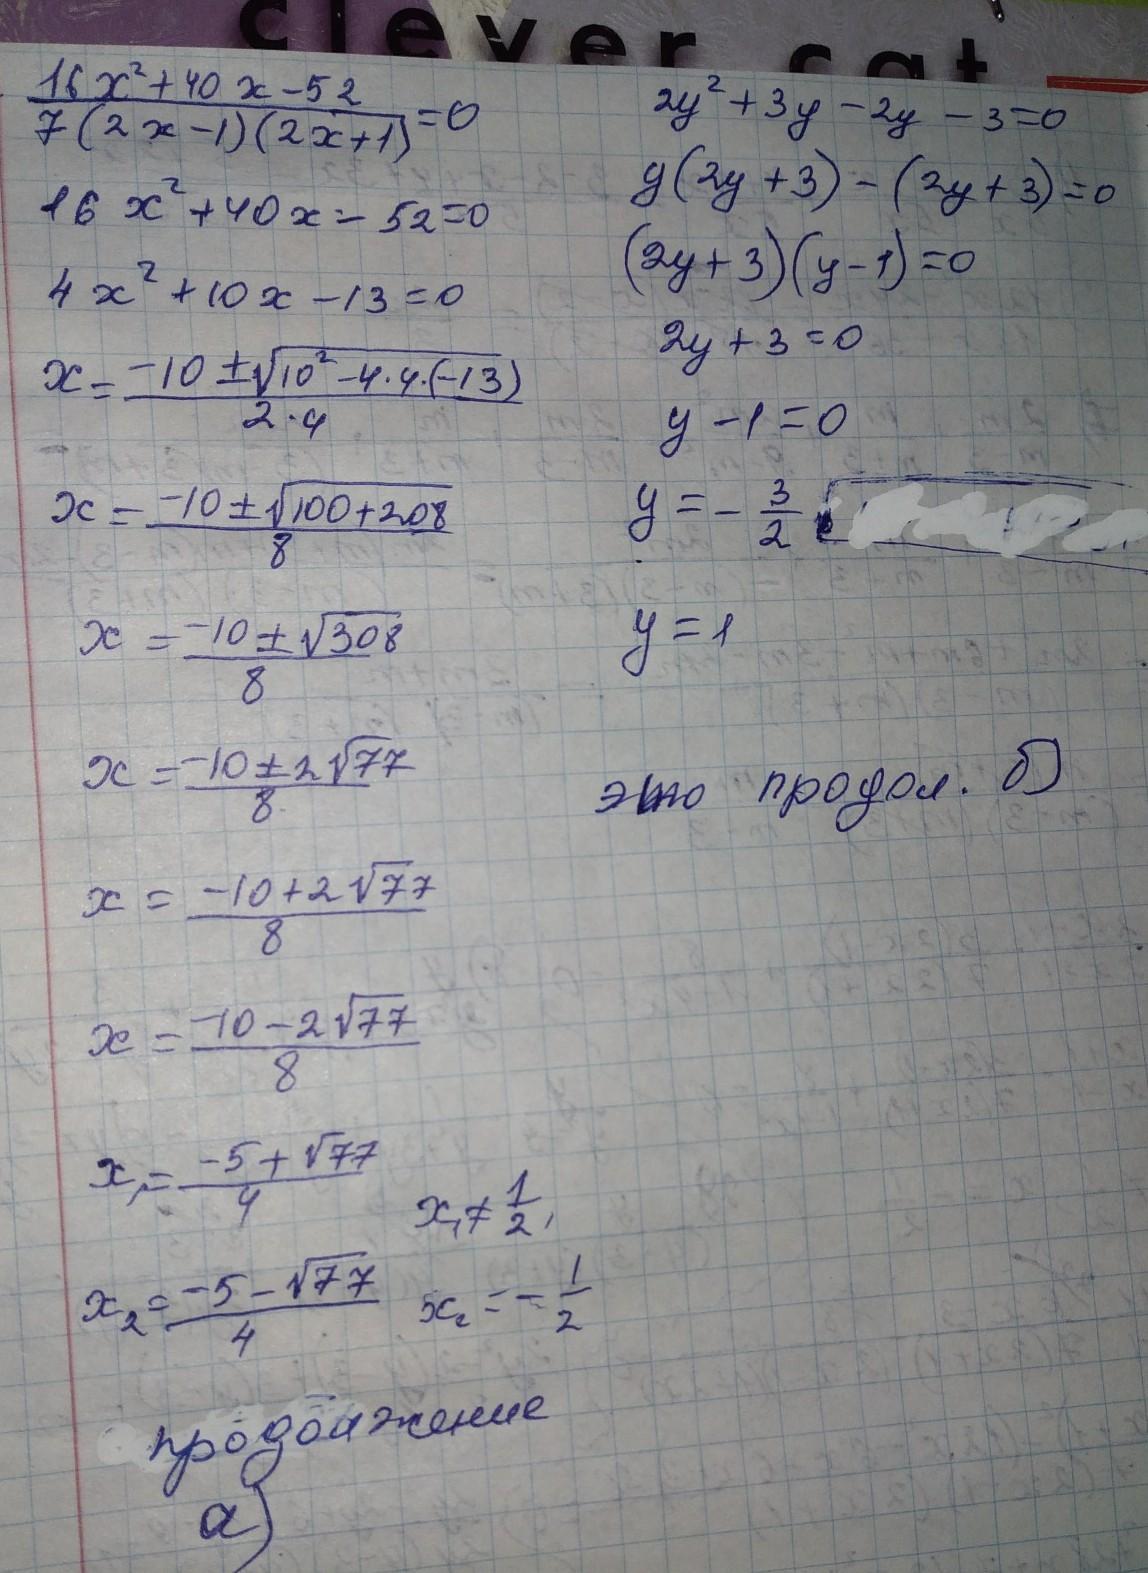 clever cat
16x²+40x-52/7(2x-1)(2x+1)=0
16x²+40x-52=0
4x²+10x-13=0
x=-10±√10²-4·4·(-13)/2·4
x=-10±√100+208/8
x=-10±√308/8
x=-10±2√77/8
x=-10+2√77/8
x=-10-2√77/8
x₁=-5+√77/4 x₁≠1/2,
x₂=-5-√77/4 x₂=-1/2
продолжение
а)
2y²+3y-2y-3=0
y(2y+3)-(2y+3)=0
(2y+3)(y-1)=0
2y+3=0
y-1=0
y=-3/2
y=1
это продол. б)